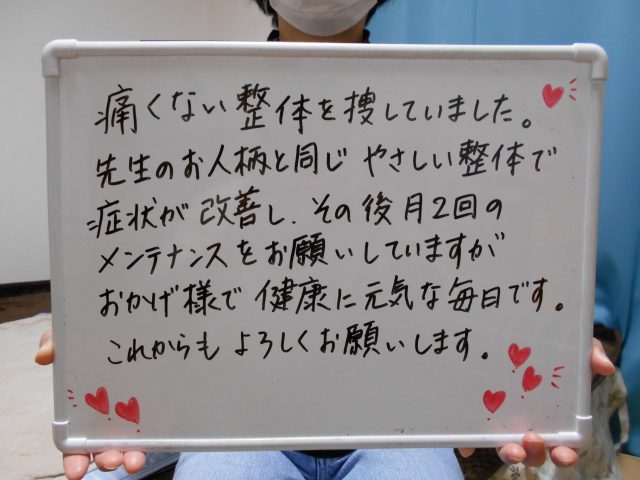 痛くない整体を捜していました。
先生のお人柄と同じ やさしい整体で
症状が 改善し、その後月2回の
メンテナンスをお願いしていますが
おかげ様で 健康に元気な毎日です。
これからも よろしくお願いします。